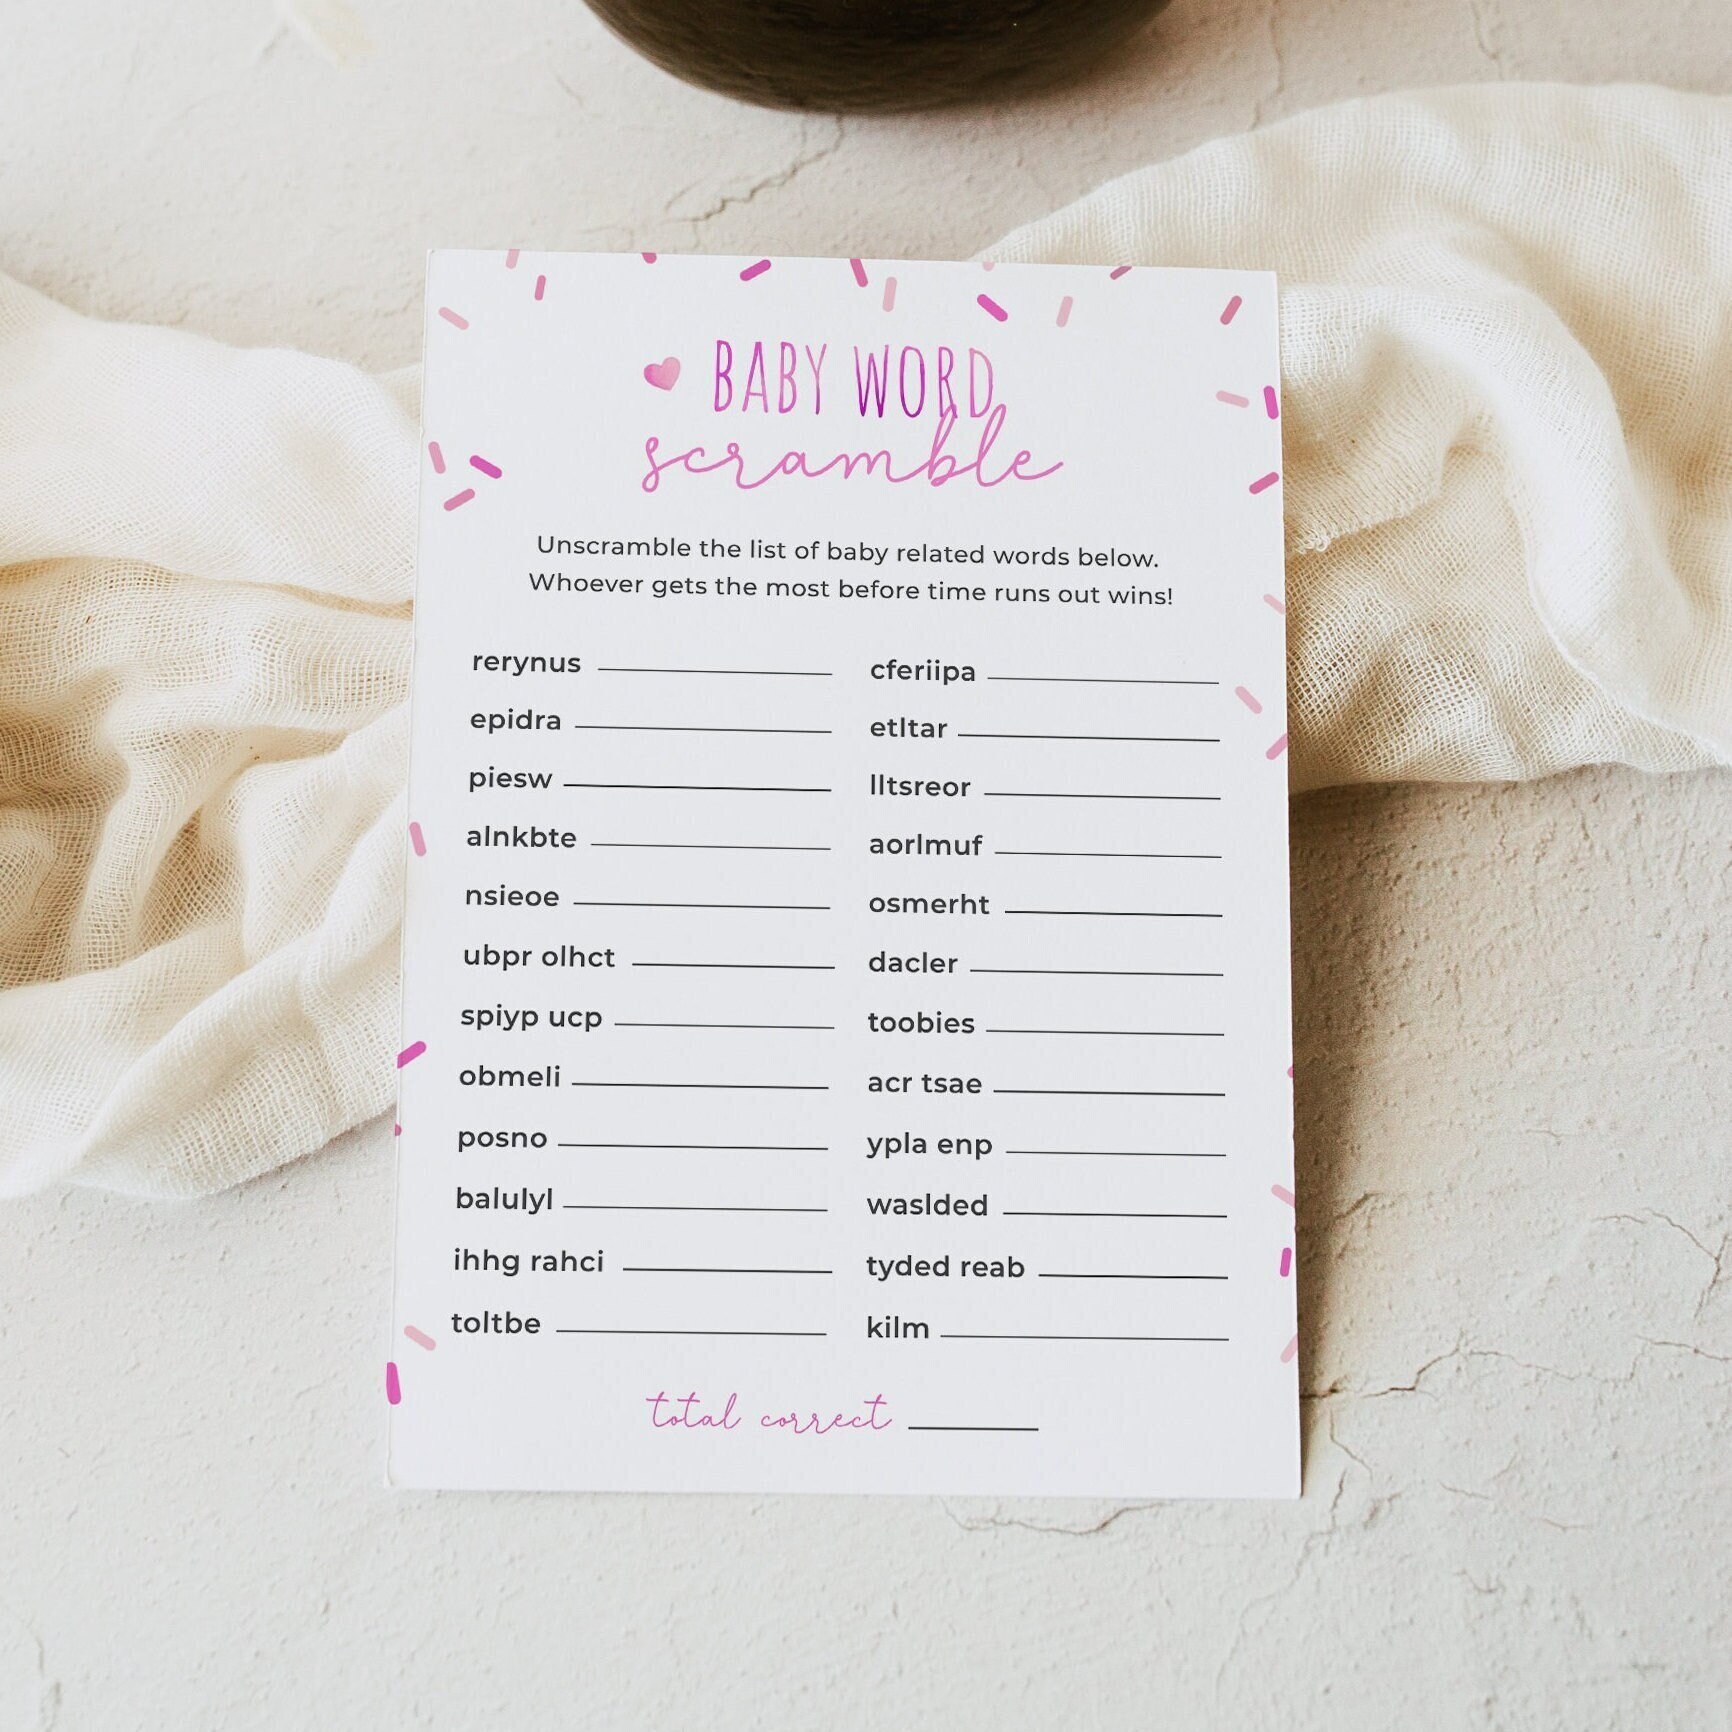 BABY WORD
scramble
Unscramble the list of baby related words below.
Whoever gets the most before time runs out wins!
rerynus
epidra
piesw
alnkbte
nsieoe
ubpr olhct
spiyp ucp
obmeli
posno
balulyl
ihhg rahci
toltbe
cferiipa
etltar
lltsreor
aorlmuf
osmerht
dacler
toobies
acr tsae
ypla enp
waslded
tyded reab
kilm
total correct